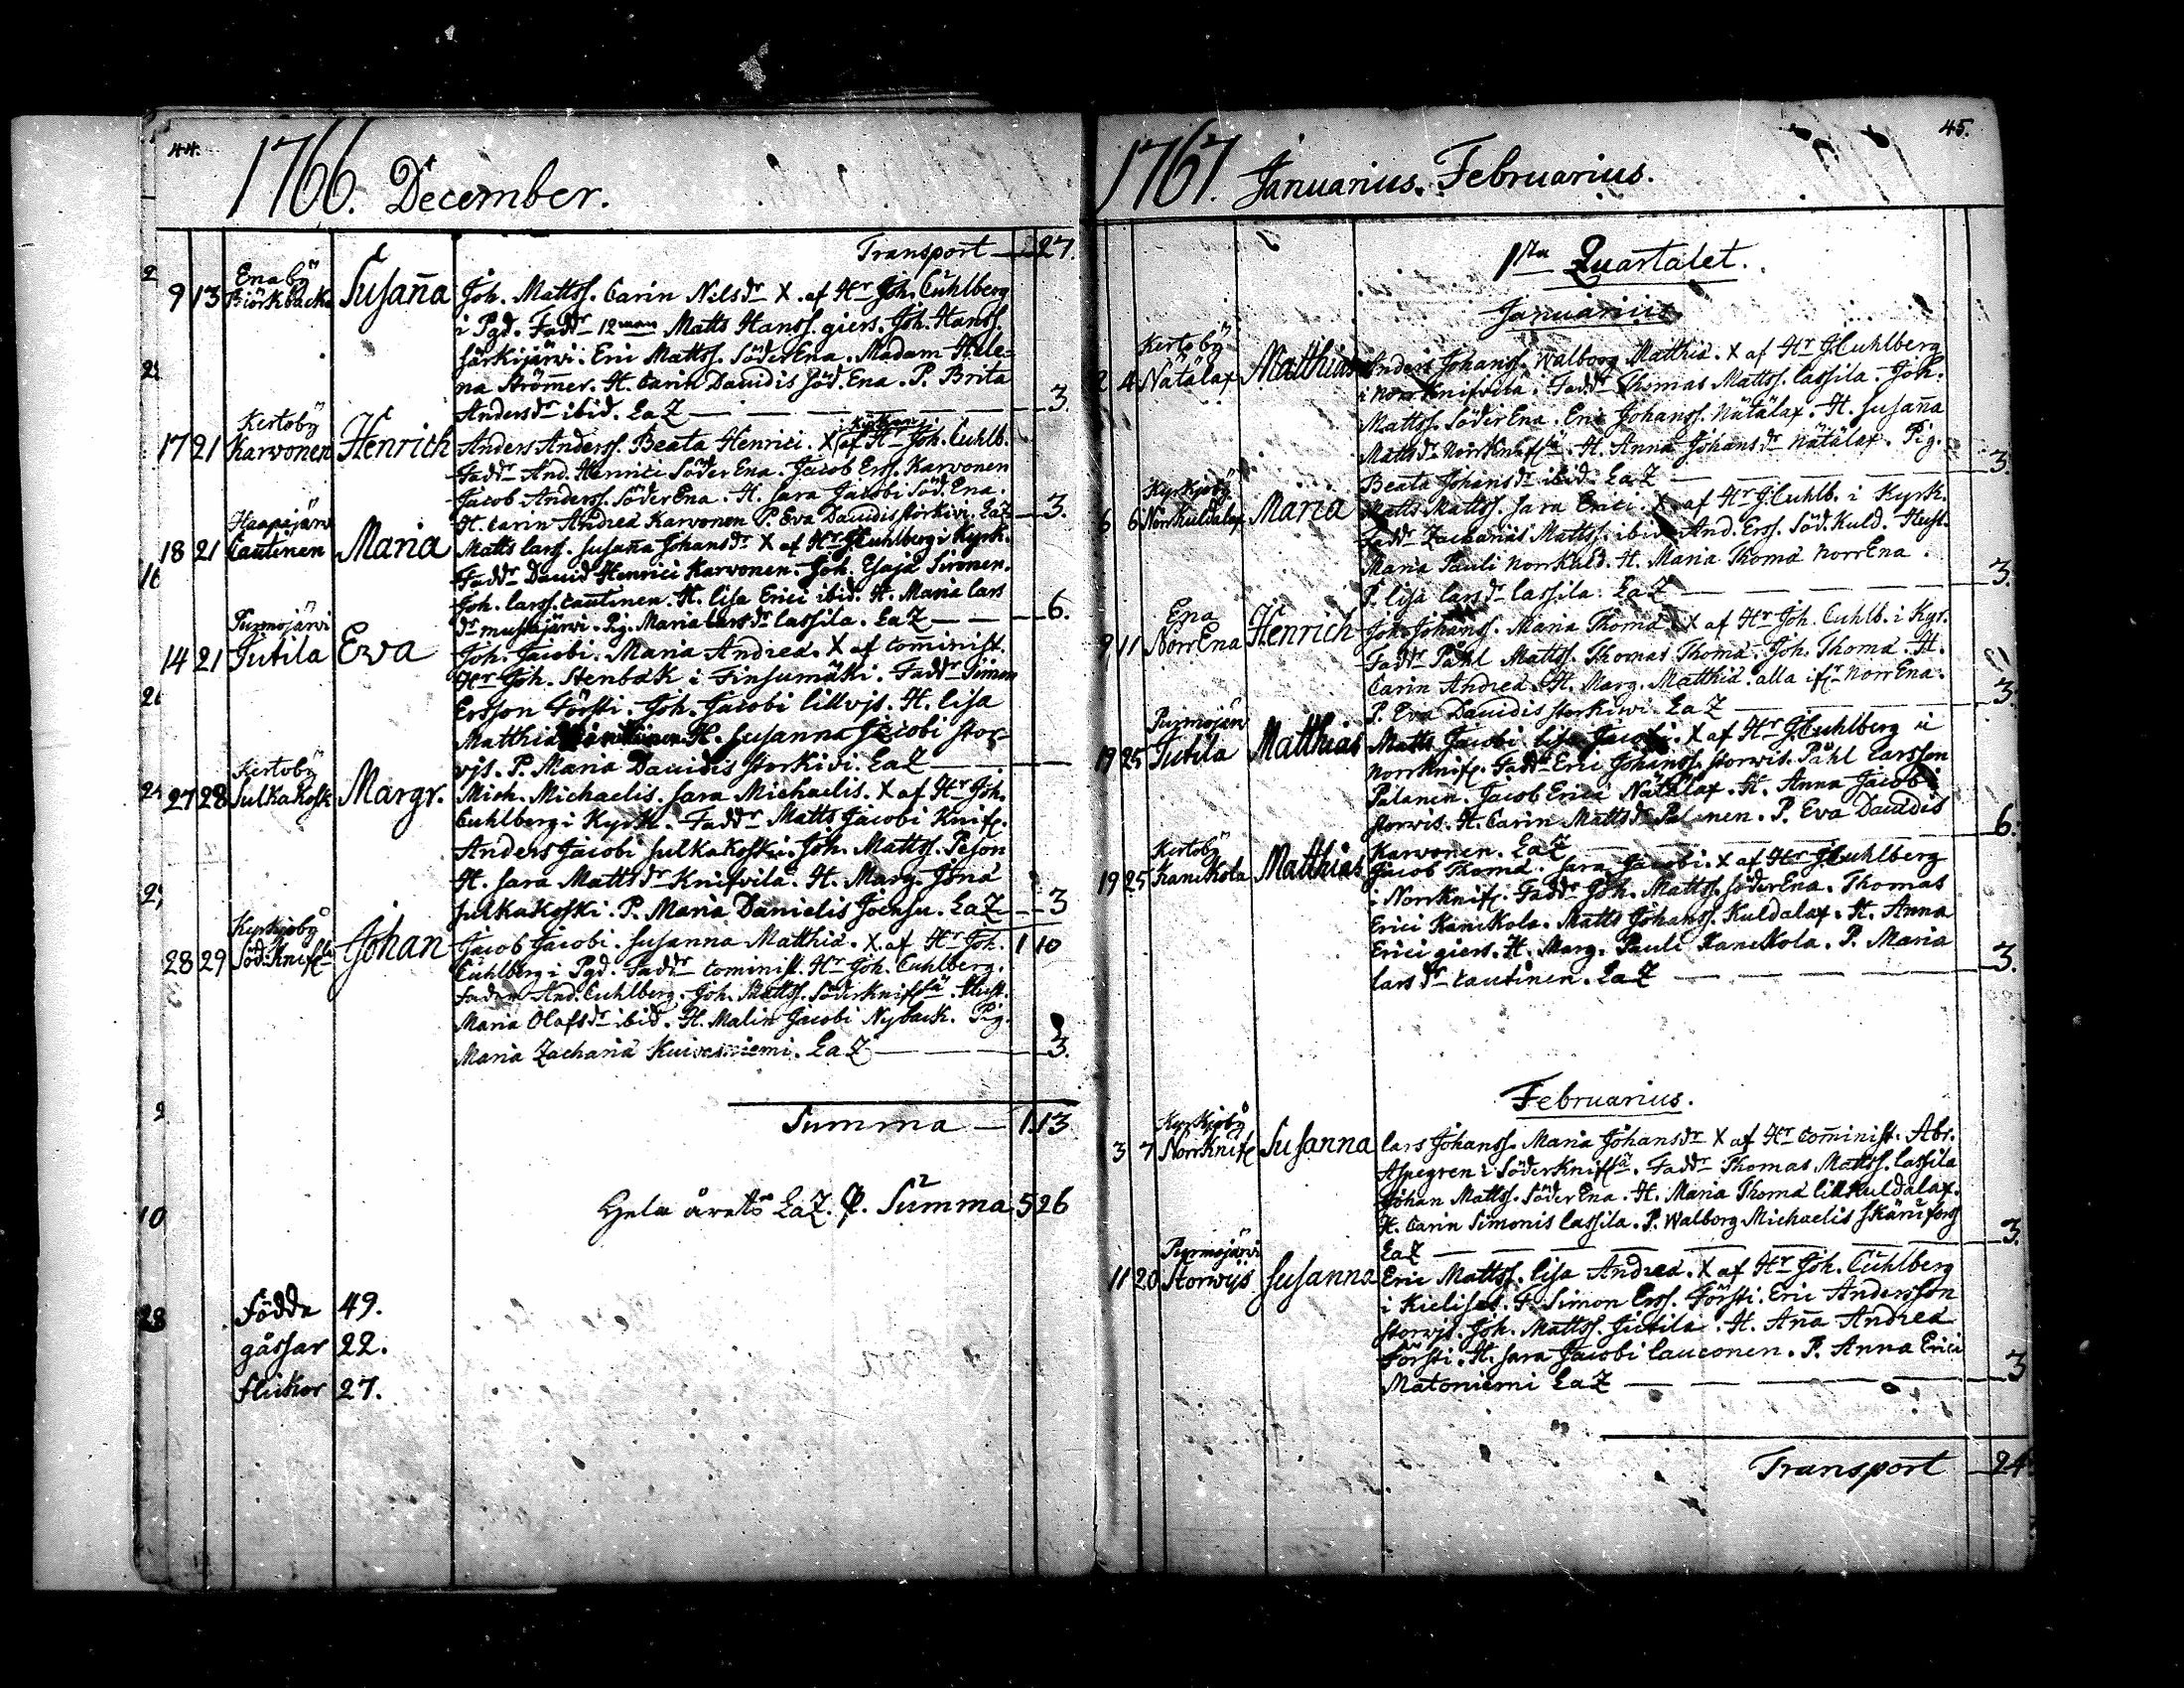 44.
1766. December.
Transport — 27.
Enaby
9 13 Biörkbacka Susan̄a Joh. Mattss. Carin Nilsdr X. af Hr Joh. Cuhlberg
i Pgd. Faddr 12man Matts Hanss. giers. Joh. Hanss.
särkijärvi. Eric Mattss. SöderEna. Madam Hele=
na Ström̄er. H. Carin Davidis Söd.Ena. P. Brita
Andersdr ibid. EaZ — 3.
Kertoby
17 21 Karvonen Henrich Anders Anderss. Beata Henrici. X af Hr Joh. Cuhlb.
Faddr And. Henrici SöderEna. Jacob Erss. Karvonen
Jacob Anderss. SöderEna. H. Sara Jacobi Söd.Ena.
H. Carin Andreæ Karvonen P. Eva Davidis storkivi. EaZ — 3.
Haapajärv
18 21 Cautinen Maria Matts Larss. Susan̄a Johansdr X af Hr J.Cuhlberg i Kyrk.
Faddr David Henrici Karvonen. Joh. Esajæ Sironen.
Joh. Larss. Cautinen. H. Lisa Erici ibid. H. Maria Lars
dr mustajärvi. Pig. Maria Larsdr Lassila. EaZ — 6.
Purmojärvi
14 21 Jutila Eva Joh. Jacobi. Maria Andreæ. X af com̄inist.
Hr Joh. Stenbäk i Finsumäki. Faddr Simon
Ersson Försti. Joh. Jacobi lillvjs. H. Lisa
Matthiæ H. Susanna Jacobi stor=
vjs. P. Maria Davidis Storkivi. EaZ —
Kertoby
27 28 Sulkakosk Margr. Mich. Michaelis. Sara Michaelis. X af Hr Joh.
Cuhlberg i Kyrk. Faddr Matts Jacobi Knif.
Anders Jacobi Sulkakoski. Joh. Mattss. Peson
H. Sara Mattsdr Knifvila. H. Marg. Jonæ
Sulkakoski. P. Maria Danielis Joensu. EaZ — 3
Kyrkjoby
28 29 Söd.Knifsl Johan Jacob Jacobi. Susanna Matthiæ. X. af Hr Joh. 1 10
Cuhlberg i Pgd. Faddr com̄inist. Hr Joh. Cuhlberg.
Fadren And. Cuhlberg. Joh. Mattss. Söderknifsä. Hust.
Maria Olafsdr ibid. H. Malin Jacobi Nyback. Pig.
Maria Zachariæ Kuivaniemi. EaZ — 3.
Summa — 1.13
Hela årets EaZ. Summa 5 26
födde 49.
gåssar 22.
flickor 27.
45.
1767. Januarius. Februarius.
1sta Quartalet.
Januarius
Kertoby
2 4 Nätälax Matthias Anders Johanss. Walborg Matthiæ. X af Hr J.Cuhlberg
i Norrknifvila. Faddr Thomas Mattss. Lassila. Joh.
Mattss. SöderEna. Eric Johanss. Nätälax. H. Susan̄a
Mattsdr Norrknifsä. H. Anna Johansdr Nätälax. Pig.
Beata Johansdr ibid. EaZ — 3.
Kyrkjoby
6 6 Norrkuldalax Maria Matts Mattss. Sara Erici. X af Hr J.Cuhlb. i Kyrk.
Faddr Zacharias Mattss. ibid. And. Erss. Söd.Kuld. Hust.
Maria Pauli Norrkuld. H. Maria Thomæ NorrEna.
P. Lisa Larsdr Lassila. EaZ — 3.
Ena
9 11 NorrEna Henrich Joh. Johanss. Maria Thomæ. X af Hr Joh. Cuhlb. i Kyr.
Faddr Påhl Mattss. Thomas Thomæ. Joh. Thomæ. H.
Carin Andreæ. H. Marg. Matthiæ. alla ifr NorrEna.
P. Eva Davidis Storkivi. EaZ — 3.
Purmojärv
19 25 Jutila Matthias Matts Jacobi. Lisa Jacobi. X af Hr J.Cuhlberg i
Norrknif. Faddr Eric Johanss. Storwis. Påhl Larsson
Palanen. Jacob Erici Nätälax. H. Anna Jacobi
Storwis. H. Carin Mattsdr Palanen. P. Eva Davidis
Karvonen. EaZ — 6.
Kertoby
19 25 Kanikola Matthias Jacob Thomæ. Sara Jacobi. X af Hr J.Cuhlberg
i Norrknif. Faddr Joh. Mattss. SöderEna. Thomas
Erici Kanikola. Matts Johanss. Kuldalax. H. Anna
Erici giers. H. Marg. Pauli Kanikola. P. Maria
Larsdr Cautinen. EaZ — 3.
Februarius.
Kyrkjoby
3 7 Norrknif Susanna Lars Johanss. Maria Johansdr X af Hr Com̄inist. Abr.
Aspegren i Söderknifsä. Faddr Thomas Mattss. Lassila
Johan Mattss. SöderEna. H. Maria Thomæ lillkuldalax.
H. Carin Simonis Lassila. P. Walborg Michaelis Skänifors
EaZ — 3.
Purmojärvi
11 20 Storwijs Susanna Eric Mattss. Lisa Andreæ. X af Hr Joh. Cuhlberg
i Kielisas. F. Simon Erss. Försti. Eric Andersson
Storvjs. Joh. Mattss. Jutila. H. An̄a Andreæ
Försti. H. Sara Jacobi Cauconen. P. Anna Erici
Matoniemi EaZ — 3
Transport — 24